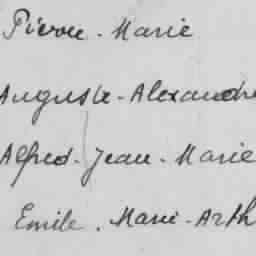 Pierre - Marie
Auguste - Alexandre
Alfred - Jean - Marie
Emile - Marie - Arth